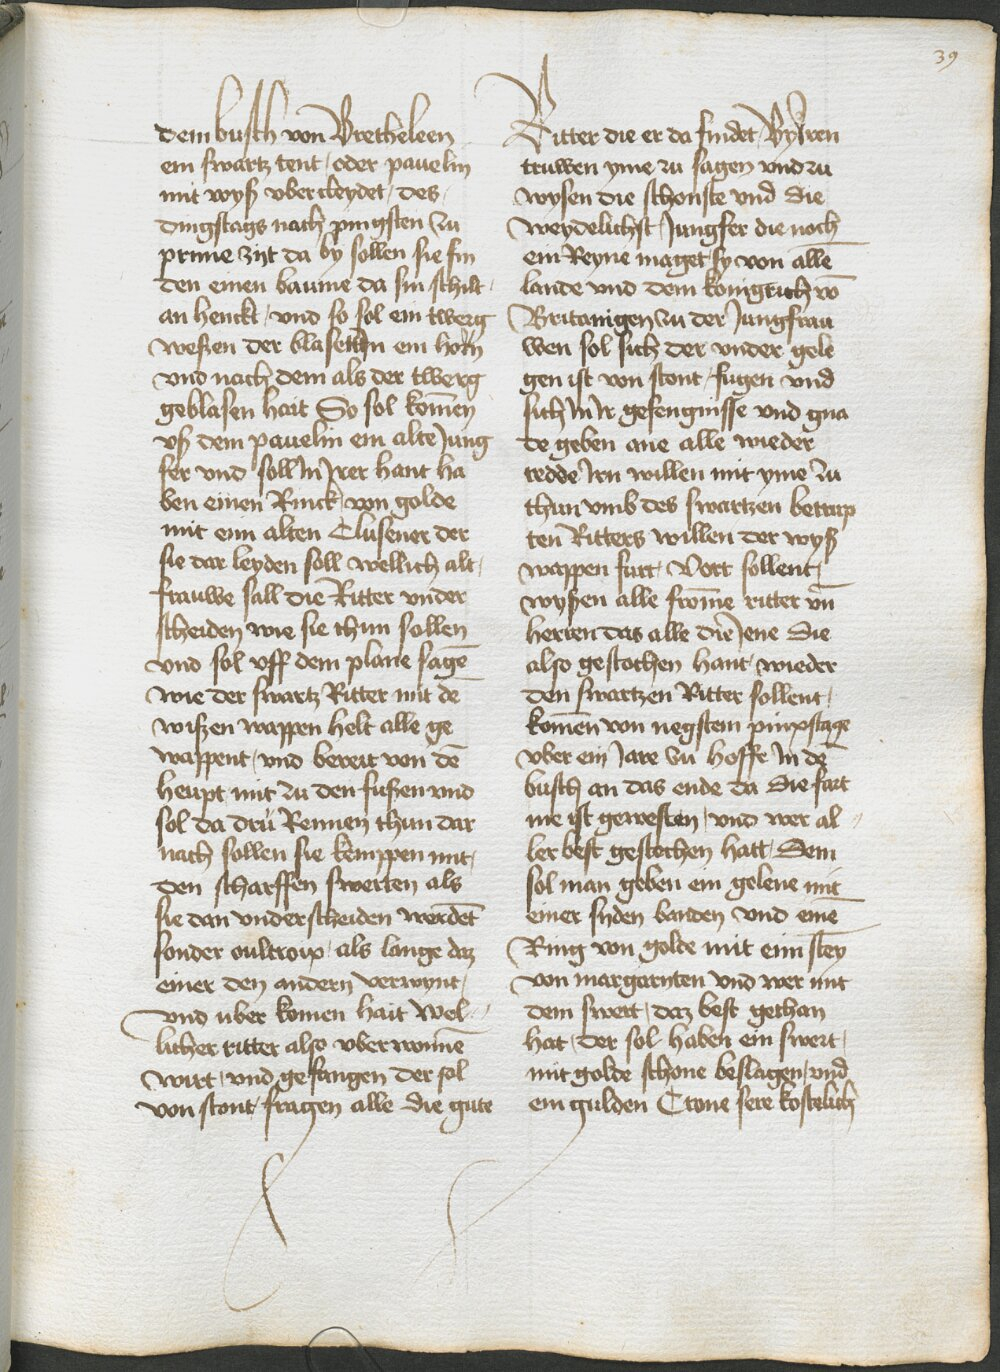 39
dem busch von Bretheleen
ein swartz tent oder pauelin
mit wyß vbercleydet des
dingstags nach pingsten zu
prime zijt da by sollen sie fin
den einen baume da sin schilt
an henckt vnd so sol ein twerg
weßen der blasett In ein horn
vnd nach dem als der twerg
geblasen hait So sol komēn
vß dem pauelin ein alte Jung
fer vnd soll In Irer hant ha
ben einen Rinck von golde
mit eim alten Clusener der
sie dar leyden soll wellich alt
frauwe sall die Ritter vnder
scheiden wie sie thun sollen
vnd sol vff dem plane sagē
wie der swartz Ritter mit dē
wißen wappen helt alle ge
wappent vnd bereit von dē
heupt mit zu den fußen vnd
sol da drü Rennen thun dar
nach sollen sie kemppen mit
den scharffen swerten als
sie dan vnderscheiden werdēt
sonder oultroix als lange daz
einer den andern verwynt
vnd uber komen hait Wel
licher ritter also vberwonnē
wirt vnd gefangen der sol
von stont fragen alle die gute
Ritter die er da findet By Iren
truwen yme zu sagen vnd zu
wysen die schonste vnd die
weydelichst Jungfer die noch
ein Reyne maget sy von allē
lande vnd dem konigrich vō
Britanigen zu der Jungfrau
wen sol sich der vnder gele
gen ist von stont fugen vnd
sich In Ir gefengnisse vnd gna
de geben ane alle wieder
redde Irn willen mit yme zu
thun vmb des swartzen betrup
ten Ritters willen der wyß
wappen furt Vort sollent
wyßen alle fromē ritter vn̄
herren das alle die Jene die
also gestochen hant wieder
den swartzen Ritter sollent
komēn von negstem pinxstage
vber ein Jare zu hoffe In dē
busch an das ende da die fart
me ist gewesten vnd wer al
ler best gestochen hatt Dem
sol man geben ein gelene mit
einer syden banden vnd einē
Ring von golde mit eim stey
von margariten vnd wer mit
dem swert daz best gethan
hat der sol haben ein swert
mit golde schone beslagen vnd
ein gulden Crone sere kostelich